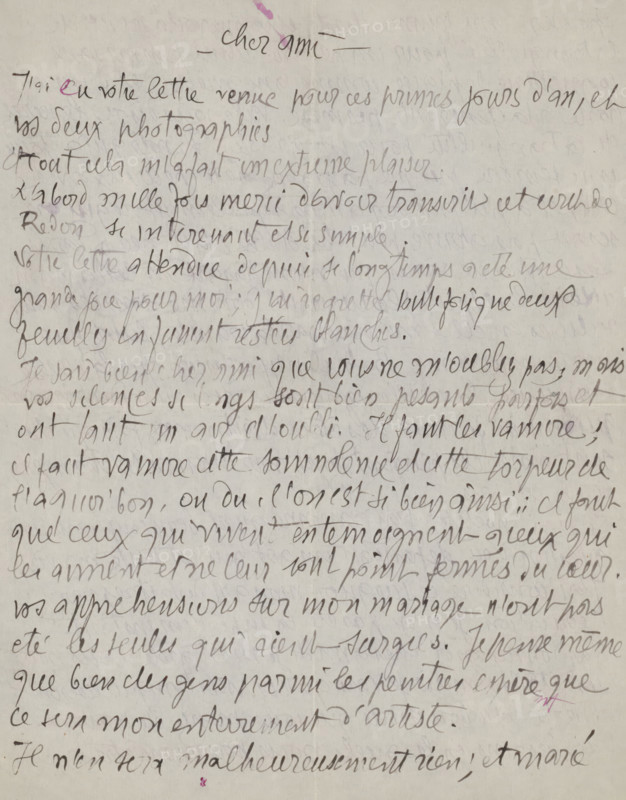 – cher ami –
J'ai eu votre lettre venue pour ces primes jours d'an, et
vos deux photographies
Tout cela m'a fait un extreme plaisir.
D'abord mille fois merci d'avoir transcrit cet ecrit de
Redon si interessant et si simple.
Votre lettre attendue depuis si longtemps a été une
grande joie pour moi; j'ai regretté toutefois que deux
feuilles en fussent restées blanches.
Je sais bien cher ami que vous ne m'oubliez pas, mais
vos silences si longs sont bien pesants parfois et
ont tant un air d'oubli. Il faut les vaincre;
il faut vaincre cette somnolence et cette torpeur de
l'a quoi bon, ou du : l'on est si bien ainsi.. il faut
que ceux qui vivent en temoignent à ceux qui
les aiment et ne leur sont point fermés du cœur.
vos apprehensions sur mon mariage n'ont pas
eté les seules qui aient surgies. Je pense même
que bien des gens parmi les peintres que
ce sera mon enterrement d'artiste.
Il n'en sera malheureusement rien; et marié,